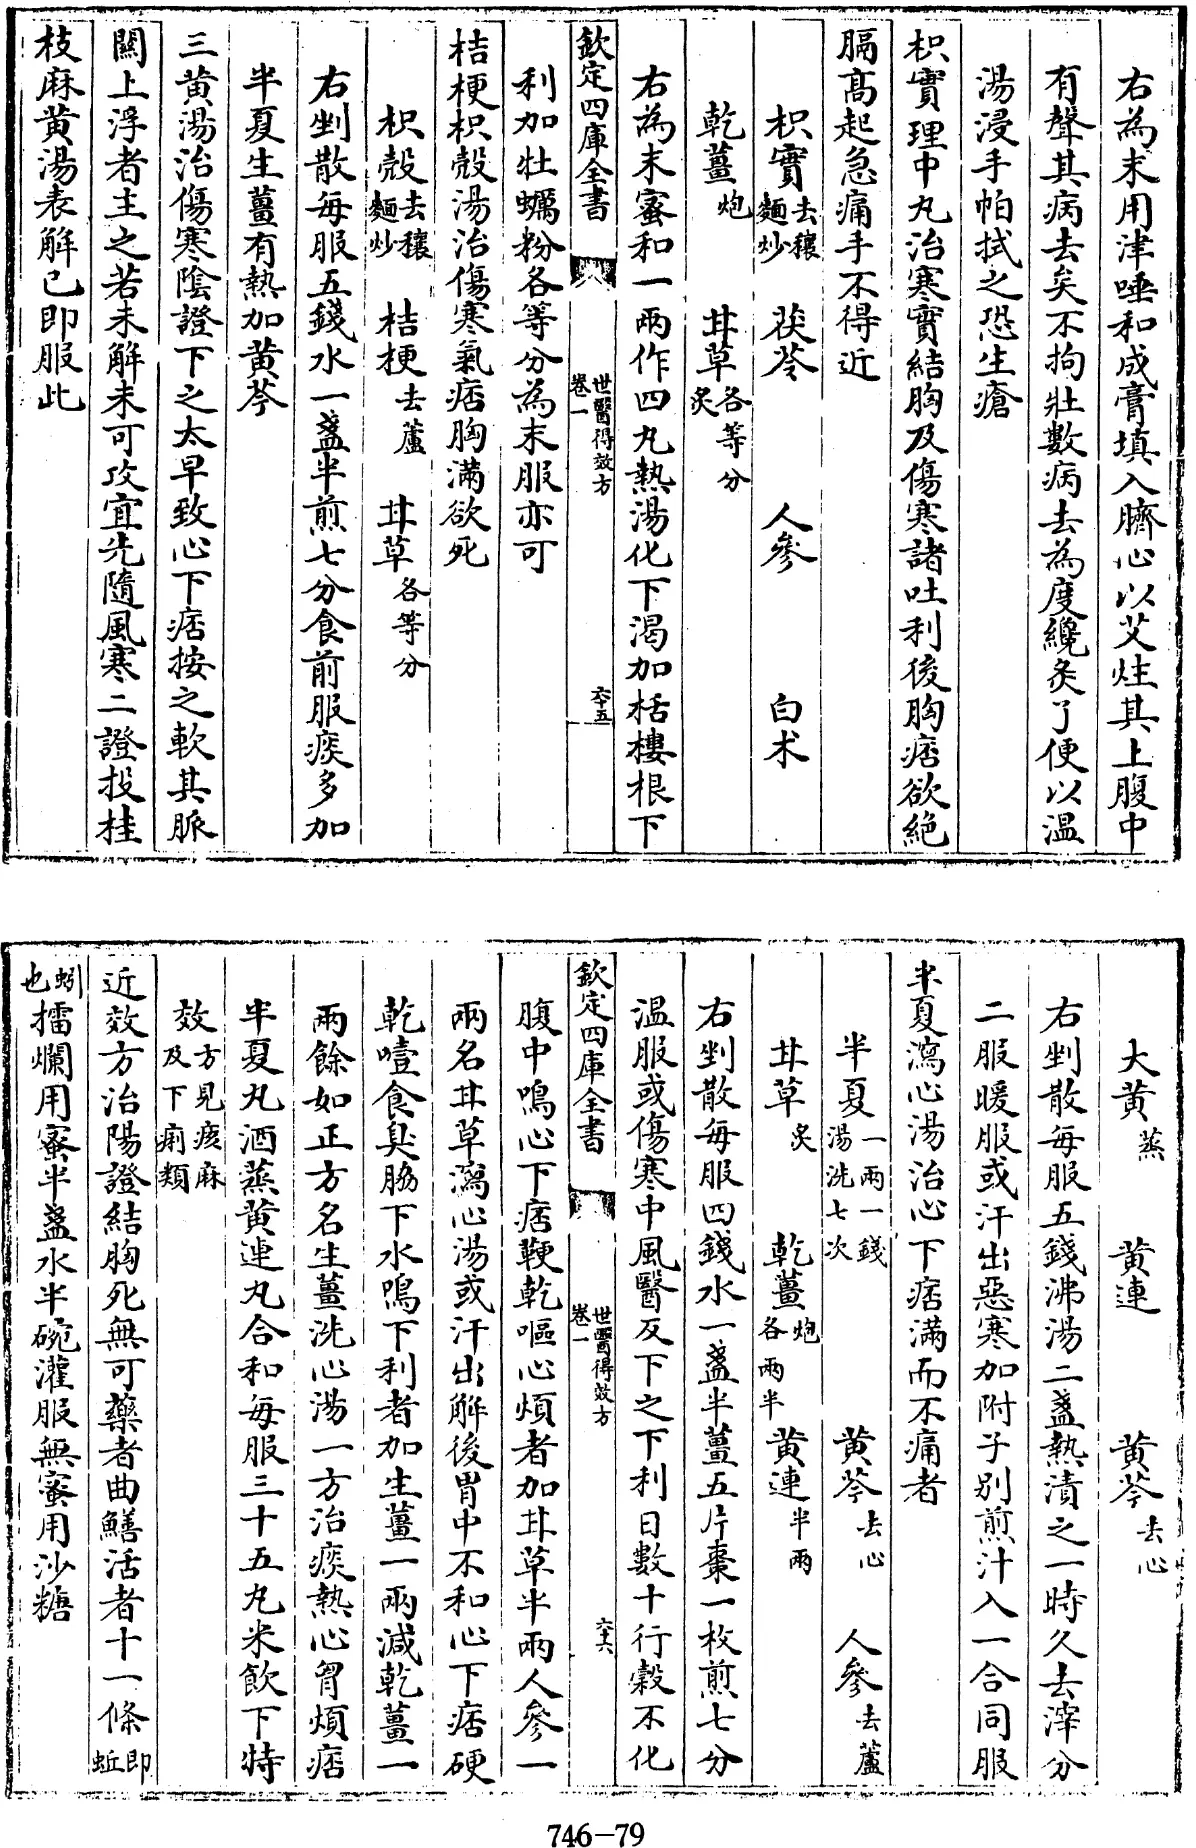 右為末用津唾和成膏填入臍心以艾炷其上腹中
有聲其病去矣不拘壯數病去為度纔灸了便以温
湯浸手帕拭之恐生瘡
枳實理中丸治寒實結胸及傷寒諸吐利後胸痞欲絶
膈高起急痛手不得近
枳實去穰麵炒 茯苓 人參 白术
乾薑炮 甘草各等分炙
右為末蜜和一兩作四丸熱湯化下渴加栝樓根下
欽定四庫全書 世醫得效方卷一 六十五
利加牡蠣粉各等分為末服亦可
桔梗枳殻湯治傷寒氣痞胸滿欲死
枳殻去穰麵炒 桔梗去蘆 甘草各等分
右剉散每服五錢水一盞半煎七分食前服痰多加
半夏生薑有熱加黄芩
三黄湯治傷寒陰證下之太早致心下痞按之軟其脈
關上浮者主之若未解未可攻宜先隨風寒二證投桂
枝麻黄湯表解已即服此
大黄蒸 黄連 黄芩去心
右剉散每服五錢沸湯二盞熱漬之一時久去滓分
二服暖服或汗出惡寒加附子别煎汁入一合同服
半夏瀉心湯治心下痞滿而不痛者
半夏一兩一錢湯洗七次 黄芩去心 人參去蘆
甘草炙 乾薑炮各兩半 黄連半兩
右剉散每服四錢水一盞半薑五片棗一枚煎七分
温服或傷寒中風醫反下之下利日數十行穀不化
欽定四庫全書 世醫得效方卷一 六十六
腹中鳴心下痞鞕乾嘔心煩者加甘草半兩人參一
兩名甘草瀉心湯或汗出解後胃中不和心下痞硬
乾噎食臭脇下水鳴下利者加生薑一兩減乾薑一
兩餘如正方名生薑洗心湯一方治痰熱心胷煩痞
半夏丸酒蒸黄連丸合和每服三十五丸米飲下特
效方見痎麻及下痢類
近效方治陽證結胸死無可藥者曲鱔活者十一條即蚯
蚓也擂爛用蜜半盞水半碗灌服無蜜用沙糖
746-79